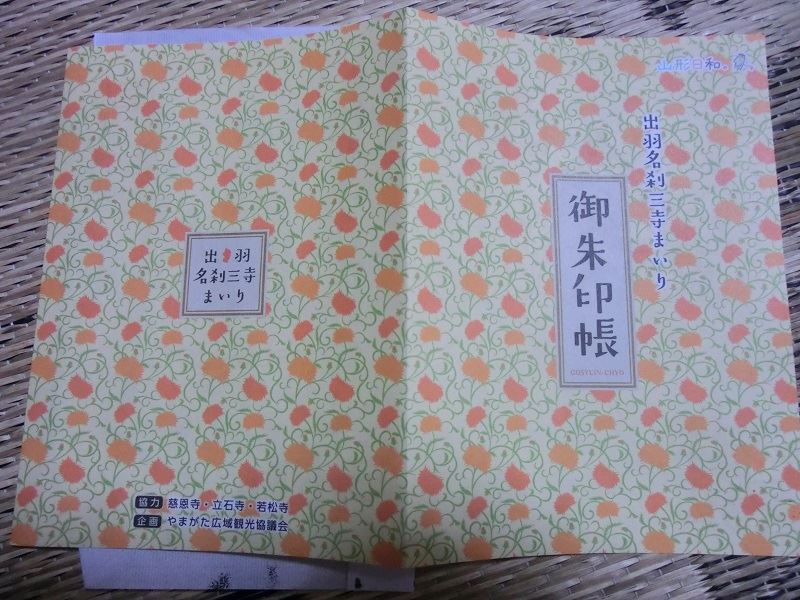 山形日和。
出羽名刹三寺まいり
御朱印帳
GOSYUIN-CHYO
出羽
名刹三寺
まいり
協力 慈恩寺・立石寺・若松寺
企画 やまがた広域観光協議会